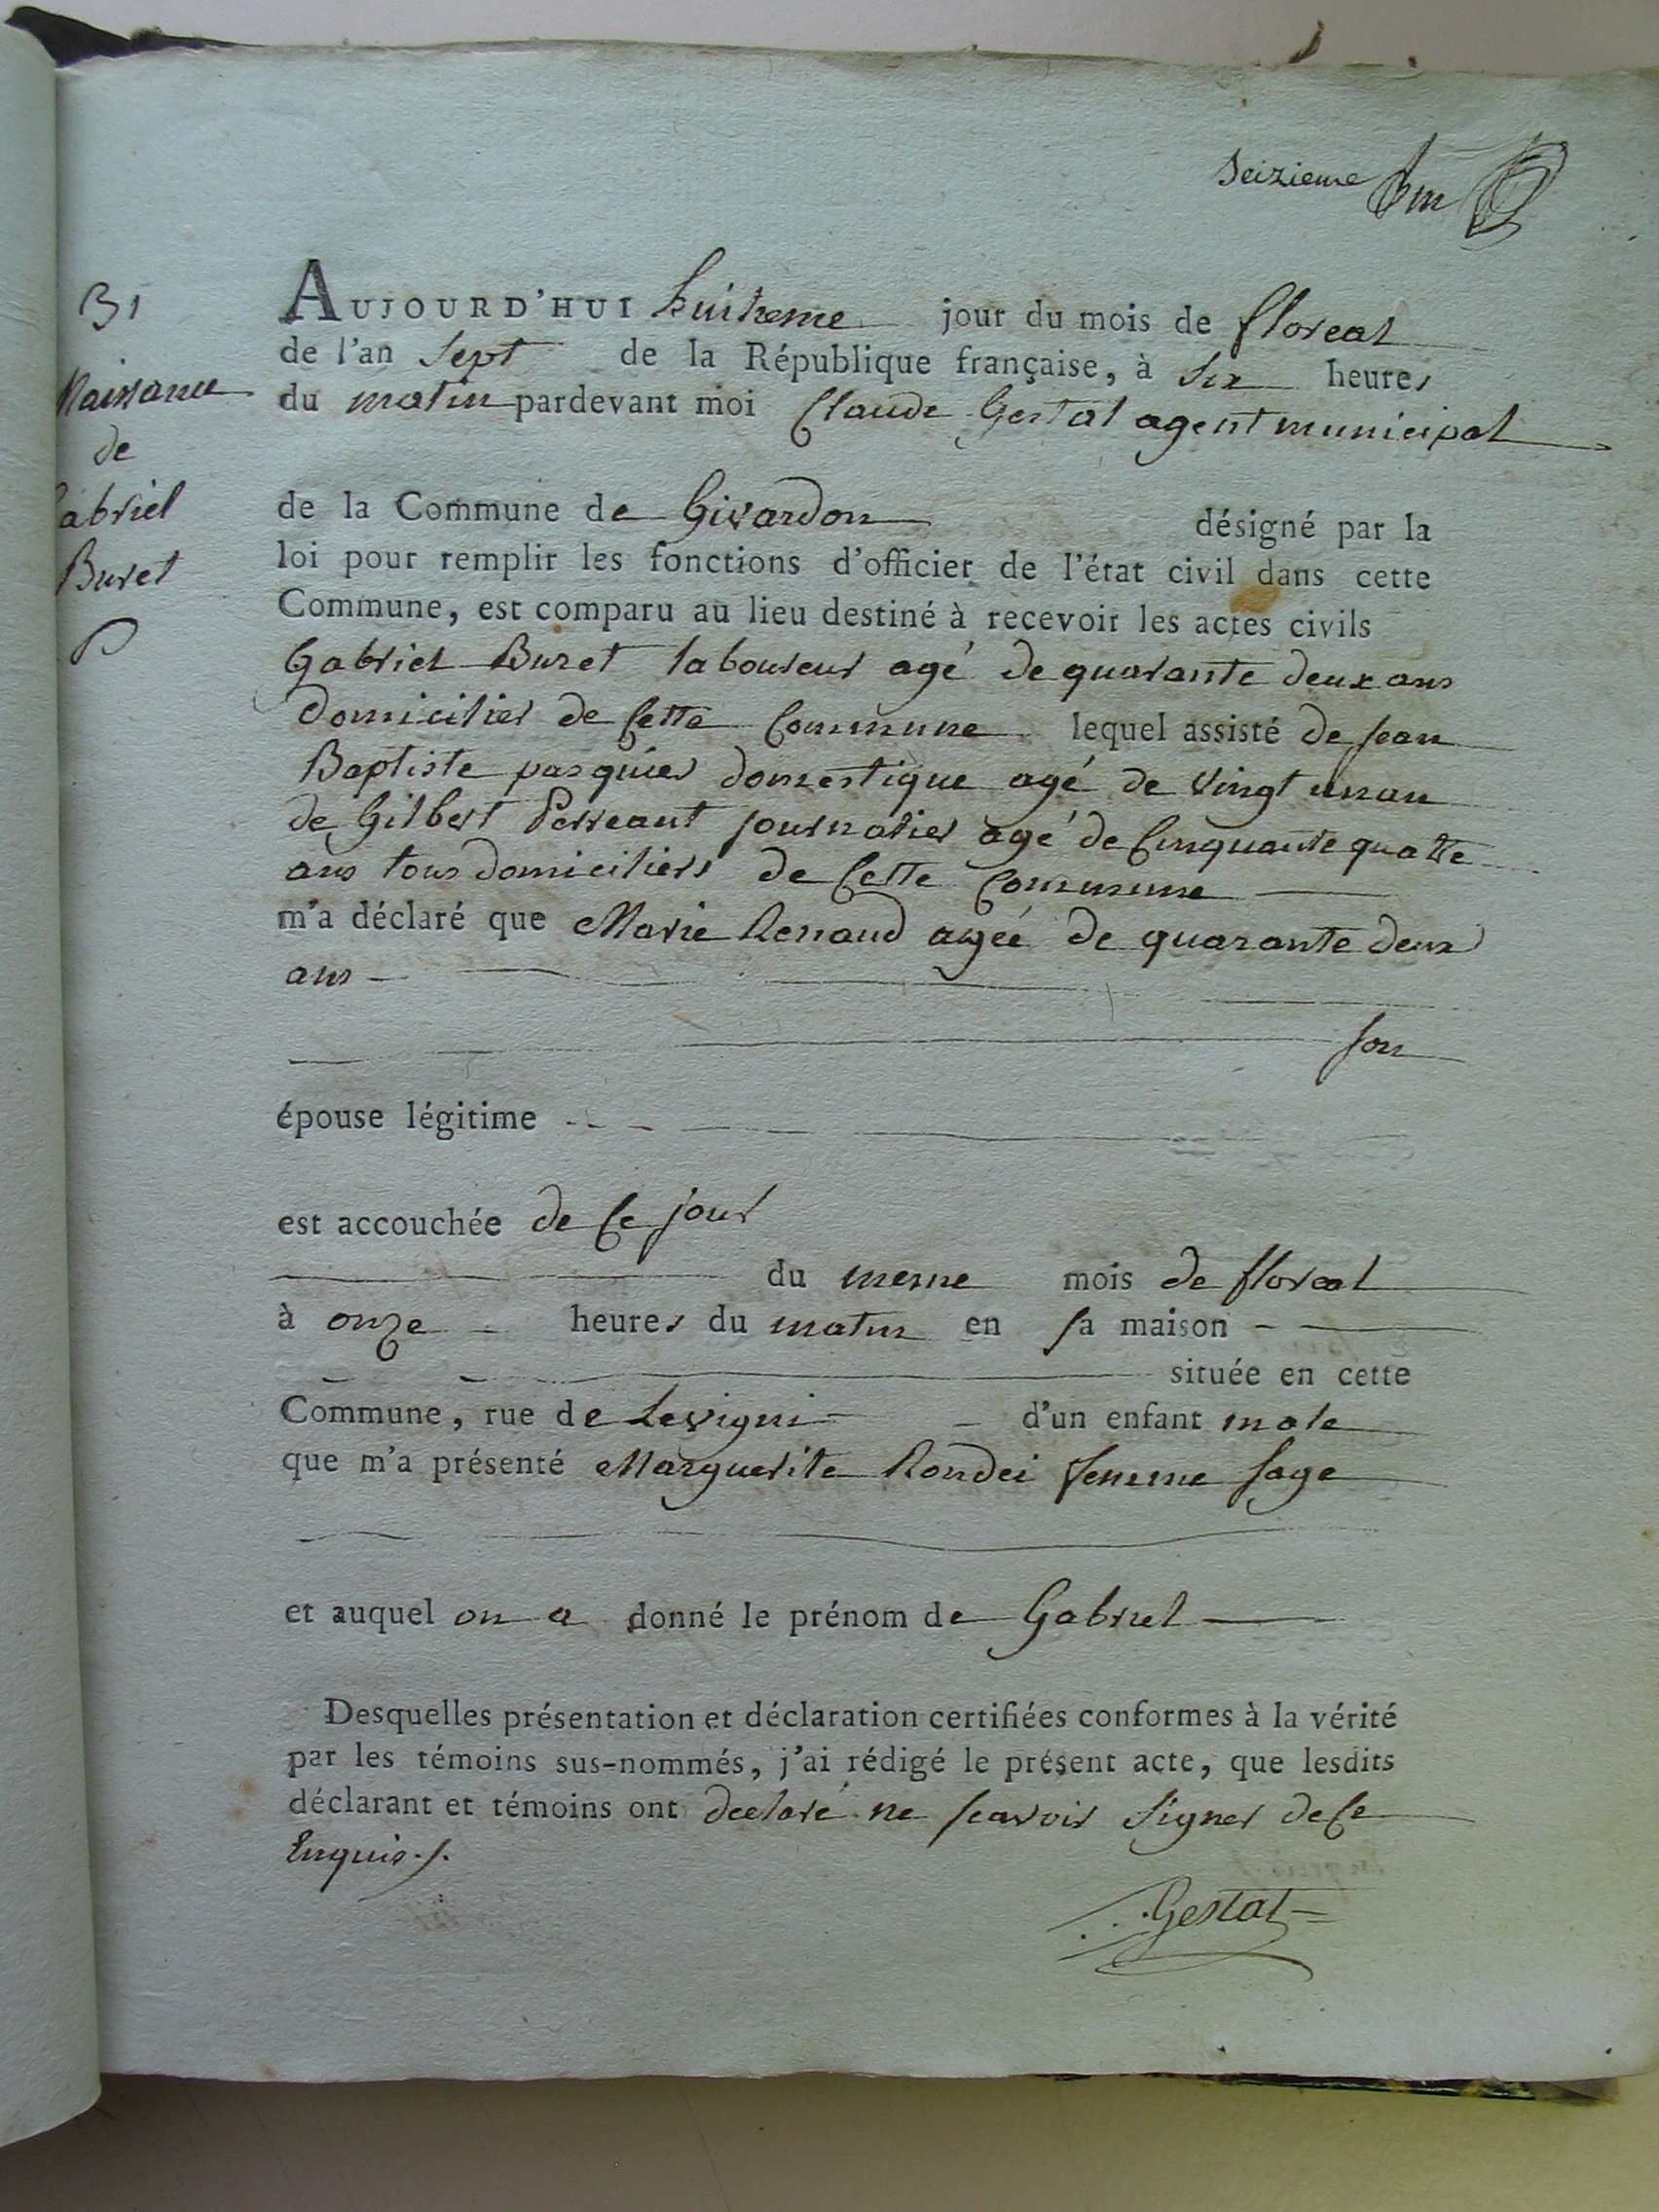 Seizieme
31
Naissance
de
abriel
Buret
AUJOURD'HUI huitieme jour du mois de floreal
de l'an Sept de la République française, à Six heures
du matin pardevant moi Claude Gestat agent municipal
de la Commune de Givardon désigné par la
loi pour remplir les fonctions d'officier de l'état civil dans cette
Commune, est comparu au lieu destiné à recevoir les actes civils
Gabriel Buret laboureur agé de quarante deux ans
domicilier de cette commune lequel assisté de jean
Baptiste pasquier domestique agé de vingt un an
de Gilbert Perreant journalier agé de cinquante quatre
ans tous domiciliers de cette commune
m'a déclaré que Marie Renaud agée de quarante deux
ans
son
épouse légitime
est accouchée de ce jour
du meme mois de floreal
à onze heures du matin en sa maison
située en cette
Commune, rue de Levigni d'un enfant male
que m'a présenté Marguerite Rondei femme sage
et auquel on a donné le prénom de Gabriel
Desquelles présentation et déclaration certifiées conformes à la vérité
par les témoins sus-nommés, j'ai rédigé le présent acte, que lesdits
déclarant et témoins ont declaré ne scavoir signer de ce
Enquis ./.
Gestat